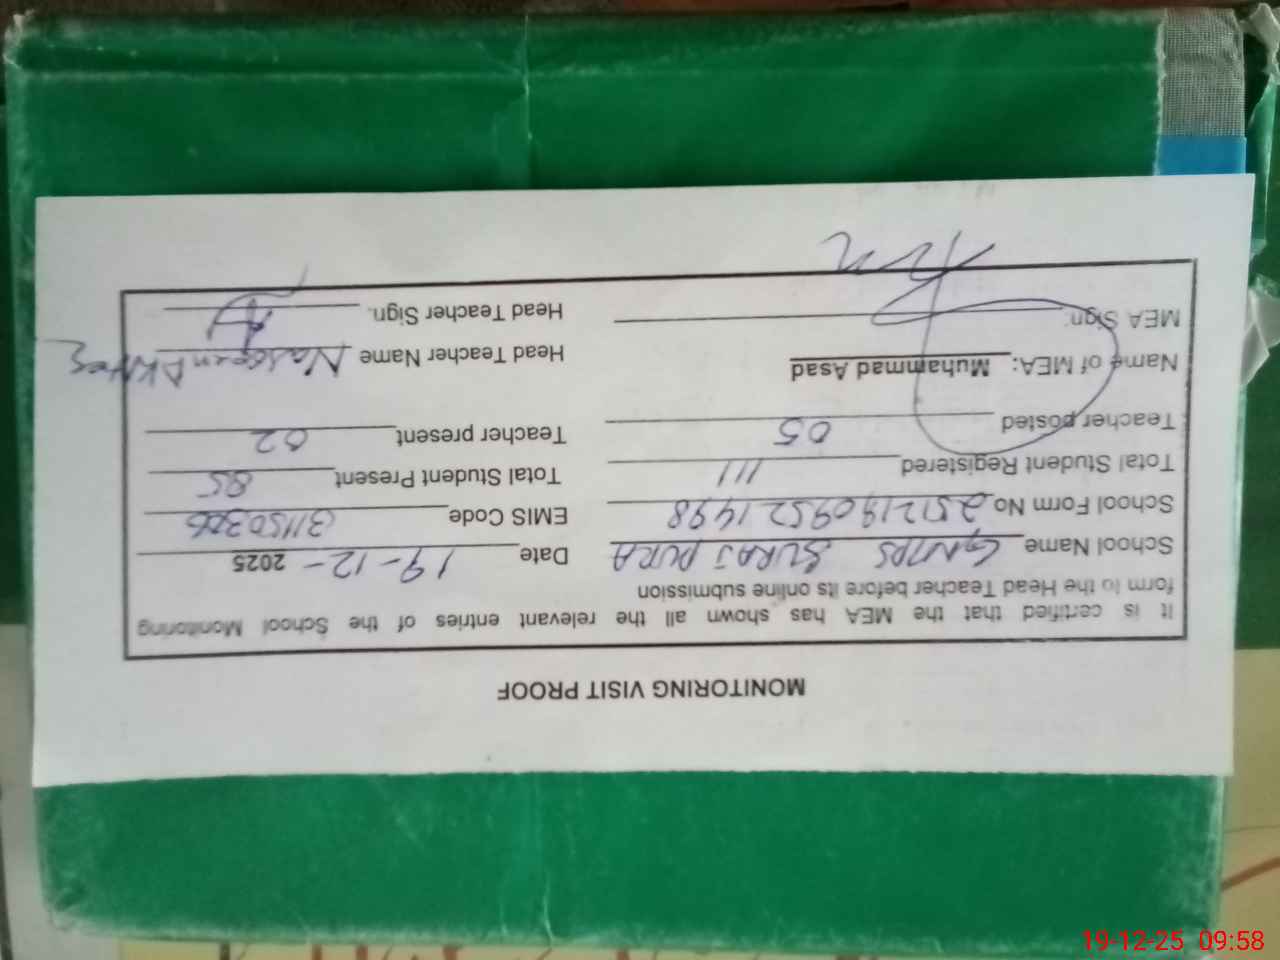 MONITORING VISIT PROOF
It is certified that the MEA has shown all the relevant entries of the School Monitoring
form to the Head Teacher before its online submission
School Name GMPS SURAJ PURA Date 19-12-2025
School Form No 25121909521498 EMIS Code 31150326
Total Student Registered 111 Total Student Present 85
Teacher posted 05 Teacher present 02
Name of MEA: Muhammad Asad Head Teacher Name Naseem Akhtar
MEA Sign: Head Teacher Sign.
19-12-25 09:58